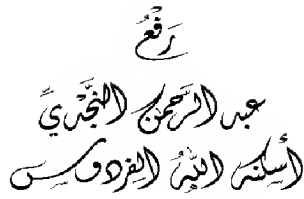 رَفْعُ
عبد الرَّحمن النَّجْدِيِّ
أسكنه اللهُ الفردوس